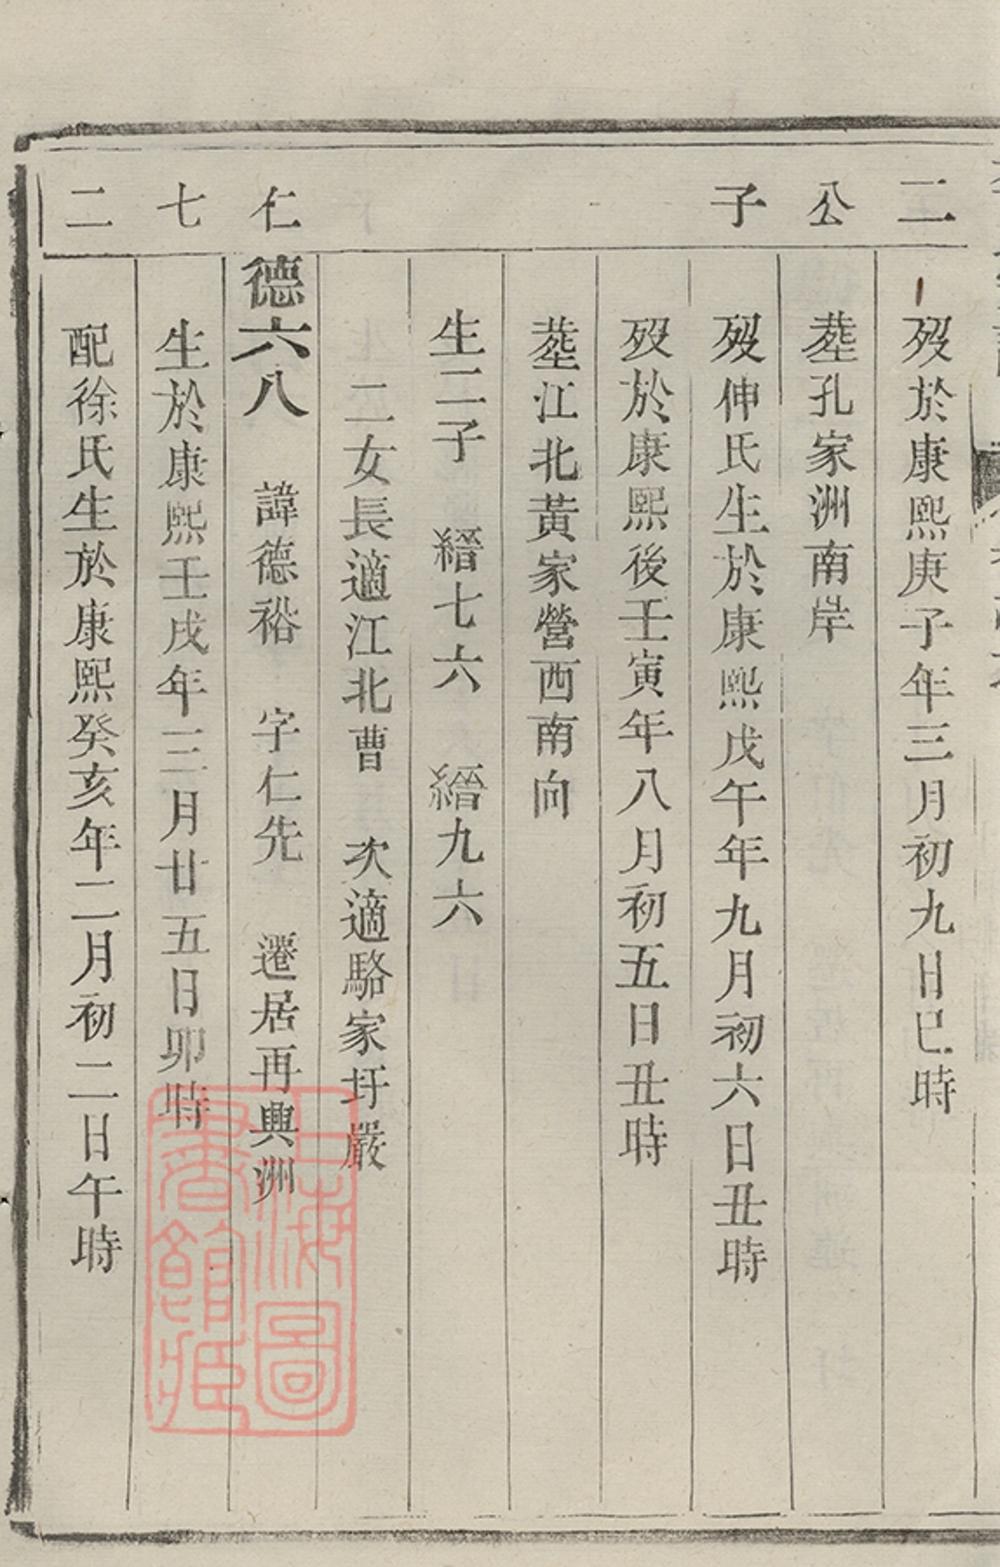 二　歿於康熙庚子年三月初九日巳時
公　塟孔家洲南岸
子　歿伸氏生於康熙戊午年九月初六日丑時
歿於康熙後壬寅年八月初五日丑時
塟江北黃家營西南向
生二子　縉七六　縉九六
二女長適江北曹　次適駱家圩嚴
仁　德六八　諱德裕　字仁先　遷居再興洲
七　生於康熙壬戌年三月廿五日卯時
二　配徐氏生於康熙癸亥年二月初二日午時
上海圖
書館藏